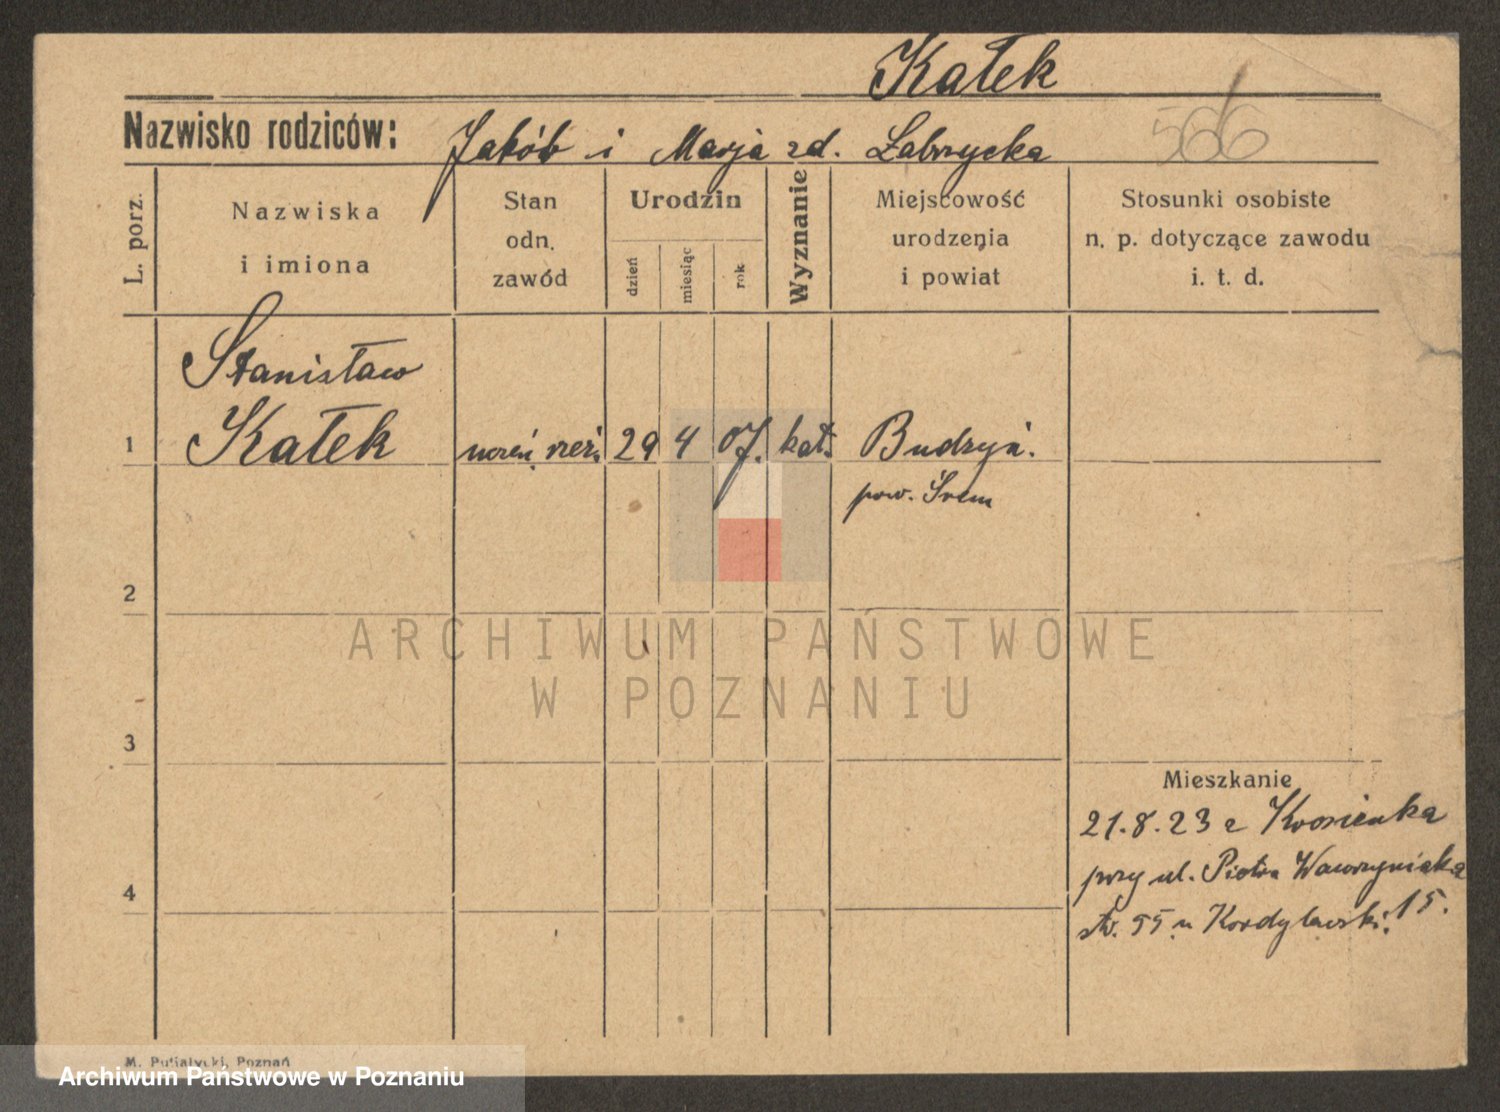 Kałek
Nazwisko rodziców: Jakób i Marja zd. Łabrzycka
566
L. porz.
Nazwiska
i imiona
Stan
odn.
zawód
Urodzin
dzień
miesiąc
rok
Wyznanie
Miejscowość
urodzenia
i powiat
Stosunki osobiste
n. p. dotyczące zawodu
i. t. d.
Stanisław
1 Kałek uczeń rzeź. 29 4 07. kat. Budzyń.
pow. Śrem
2
ARCHIWUM PAŃSTWOWE
W POZNANIU
3
Mieszkanie
21.8.23 z Krosienka
przy ul. Piotra Wawrzyniaka
4
str. 55 u Kordylewski. 15.
M. Putiatycki, Poznań
Archiwum Państwowe w Poznaniu